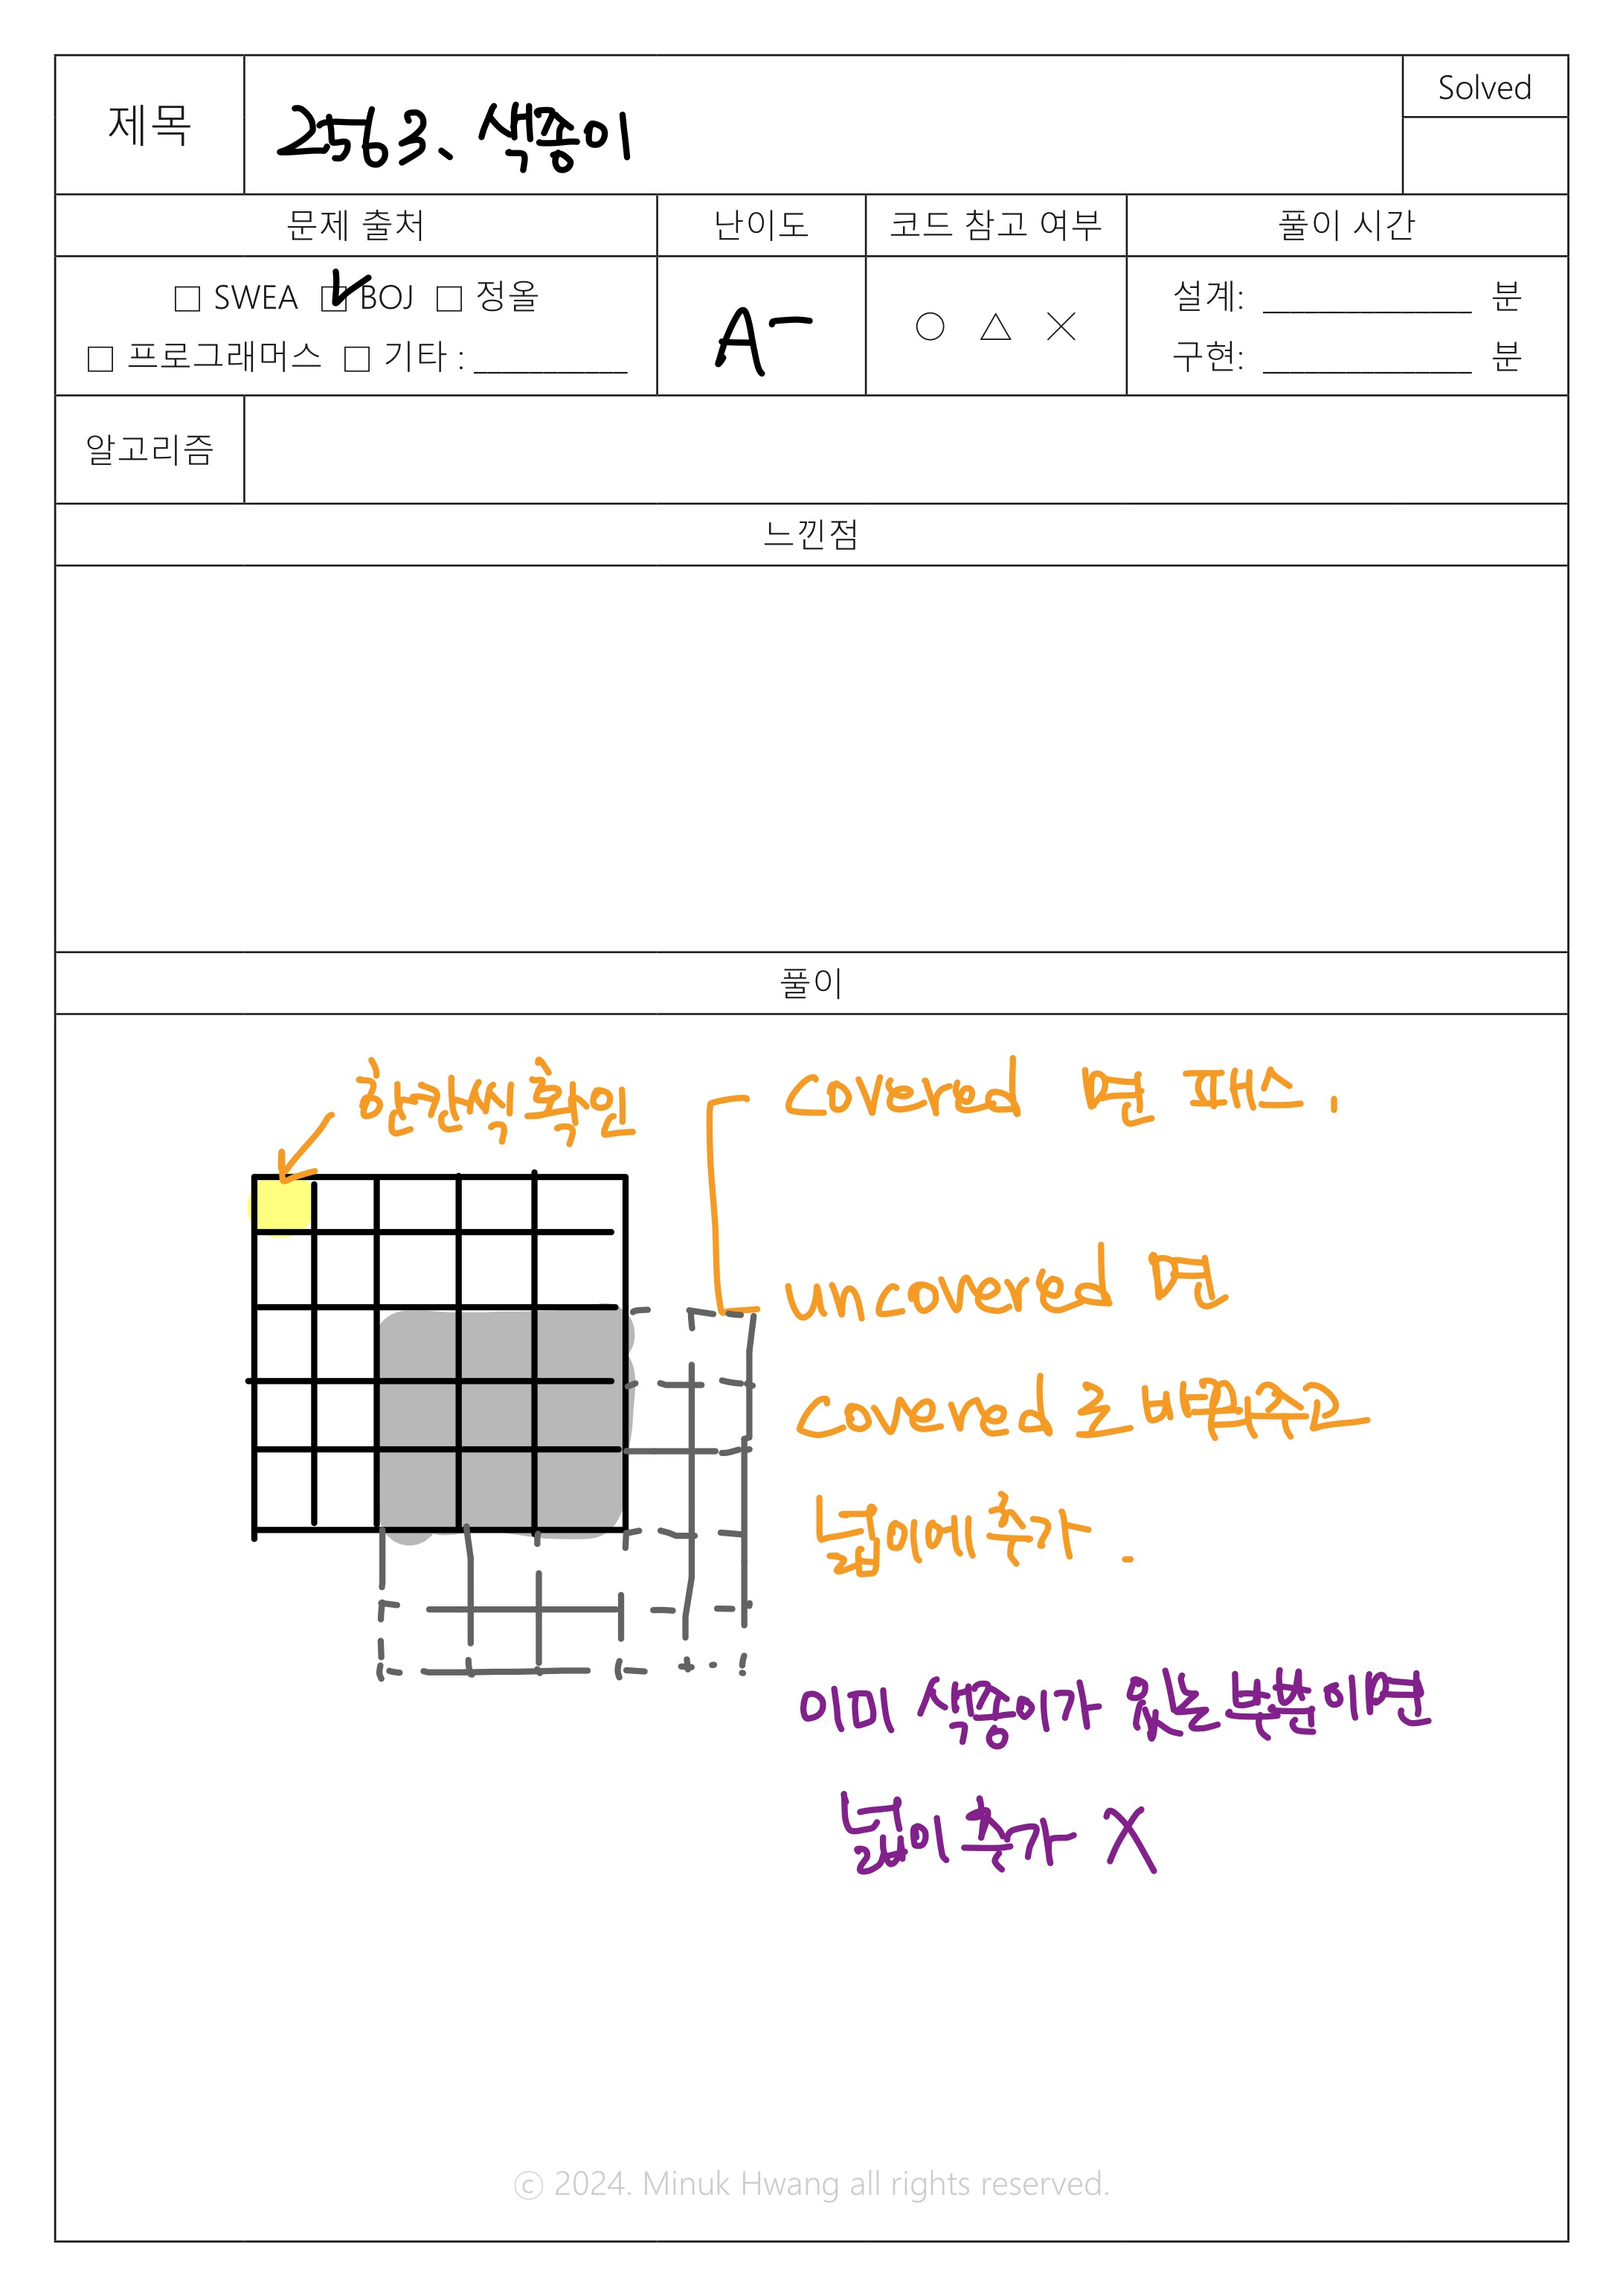 제목
2563. 색종이
Solved
문제 출처
난이도
코드 참고 여부
풀이 시간
□ SWEA □ BOJ □ 정올
□ 프로그래머스 □ 기타 : __________
A-
○ △ ×
설계: ______________ 분
구현: ______________ 분
알고리즘
느낀점
풀이
한칸씩 확인
covered 면 패스.
uncovered 면
covered로 바꿔주고
넓이에 추가.
이미 색종이가 있는 부분이면
넓이 추가 X
ⓒ 2024. Minuk Hwang all rights reserved.